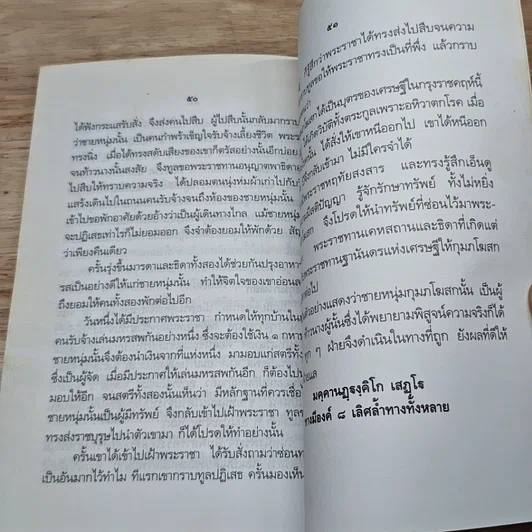 ๕๐
ได้ฟังกระแสรับสั่ง จึงส่งคนไปสืบ ผู้ไปสืบนั้นกลับมากราบ
ว่าชายหนุ่มนั้น เป็นคนกำพร้าเข็ญใจรับจ้างเลี้ยงชีวิต พระร
ทรงนิ่ง เมื่อได้ทรงสดับเสียงของเขาก็ตรัสอย่างนั้นอีกบ่อย
จนทำวนางนั้นสงสัย จึงทูลขอพระราชทานอนุญาตพาธิดา
ไปสืบให้ทราบความจริง ได้ปลอมตนนุ่งห่มผ้าเก่าไปกับ
แสร้งเดินไปในถนนคนรับจ้างจนถึงห้องของชายหนุ่มนั้น
เข้าไปขอพักอาศัยด้วยอ้างว่าเป็นผู้เดินทางไกล แม้ชายหนุ่ม
จะปฏิเสธเท่าไรก็ไม่ยอมออก จึงจำต้องยอมให้พักด้วย สัญ
ว่าเพียงคืนเดียว
ครั้นรุ่งขึ้นมารดาและธิดาทั้งสองได้ช่วยกันปรุงอาหา
รสเป็นอย่างดีให้แก่ชายหนุ่มนั้น ทำให้จิตใจของเขาอ่อนล
ถึงยอมให้คนทั้งสองพักต่อไปอีก
วันหนึ่งได้มีประกาศพระราชา กำหนดให้ทุกบ้านใน
คนรับจ้างเล่นมหรสพกันอย่างหนึ่ง ซึ่งจะต้องใช้เงิน ๑ กหาป
ชายหนุ่มนั้นจึงต้องนำเงินจากที่แห่งหนึ่ง มามอบแก่สตรีทั้ง
ซึ่งเป็นผู้จัด เมื่อมีประกาศให้เล่นมหรสพกันอีก ก็ต้องไปน
มอบให้อีก จนสตรีทั้งสองนั้นเห็นว่า มีหลักฐานที่ควรเชื่อ
ชายหนุ่มนั้นเป็นผู้มีทรัพย์ จึงกลับเข้าไปเฝ้าพระราชา ทูลข
ทรงส่งราชบุรุษไปนำตัวเขามา ก็ได้โปรดให้ทำอย่างนั้น
ครั้นเขาได้เข้าไปเฝ้าพระราชา ได้รับสั่งถามว่าซ่อนท
เป็นอันมากไว้ทำไม ทีแรกเขากราบทูลปฏิเสธ ครั้นมองเห็น
๕๑
ก็รู้สึกว่าพระราชาได้ทรงส่งไปสืบจนความ
ทูลขอให้พระราชาทรงเป็นที่พึ่ง แล้วกราบ
สกได้เป็นบุตรของเศรษฐีในกรุงราชคฤห์นี้
เกิดวิบัติทั้งตระกูลเพราะอหิวาตกโรค เมื่อ
นั้น ได้สั่งให้เขาหนีออกไป เขาได้หนีออก
งกลับเข้ามา ไม่มีใครจำได้
พระราชหฤทัยสงสาร และทรงรู้สึกเอ็นดู
มีสติปัญญา รู้จักรักษาทรัพย์ ทั้งไม่หยิ่ง
จึงโปรดให้นำทรัพย์ที่ซ่อนไว้มาพระ-
พระราชทานเคหสถานและธิดาที่เกิดแต่
พระราชทานฐานันดรแห่งเศรษฐีให้กุมภโฆสก
ต่อไป
ตัวอย่างแสดงว่าชายหนุ่มกุมภโฆสกนั้น เป็นผู้
ทำวนางผู้นั้นซึ่งได้พยายามพิสูจน์ความจริงก็ได้
ทุก ๆ ฝ่ายจึงดำเนินในทางที่ถูก ยังผลที่ดีให้
มคฺคานฏฺฐงฺคิโก เสฏฺโฐ
ทางมีองค์ ๘ เลิศล้ำทางทั้งหลาย